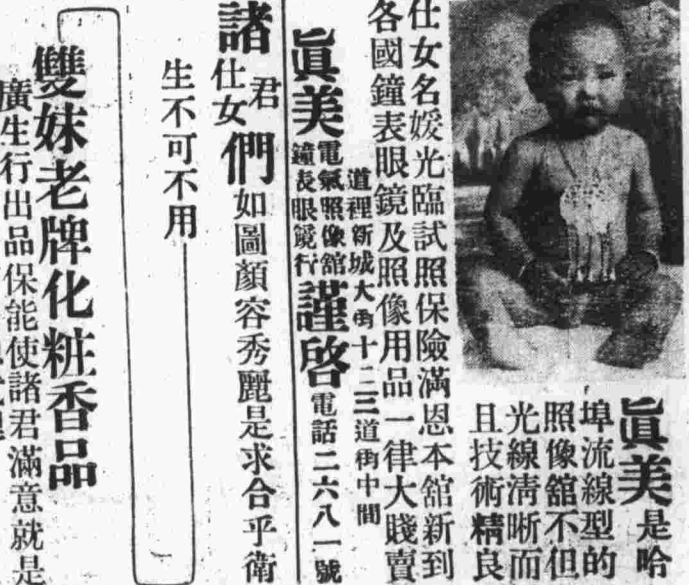 眞美是哈
埠流線型的
照像舘不但
光線淸晰而
且技術精良
仕女名媛光臨試照保險滿恩本舘新到
各國鐘表眼鏡及照像用品一律大賤賣
道裡新城大街十二三道街中間
眞美電氣照像舘鐘表眼鏡行謹啓電話二六八一號
諸君仕女們如圖顏容秀麗是求合乎衛
生不可不用
雙妹老牌化粧香品
廣生行出品保能使諸君滿意就是